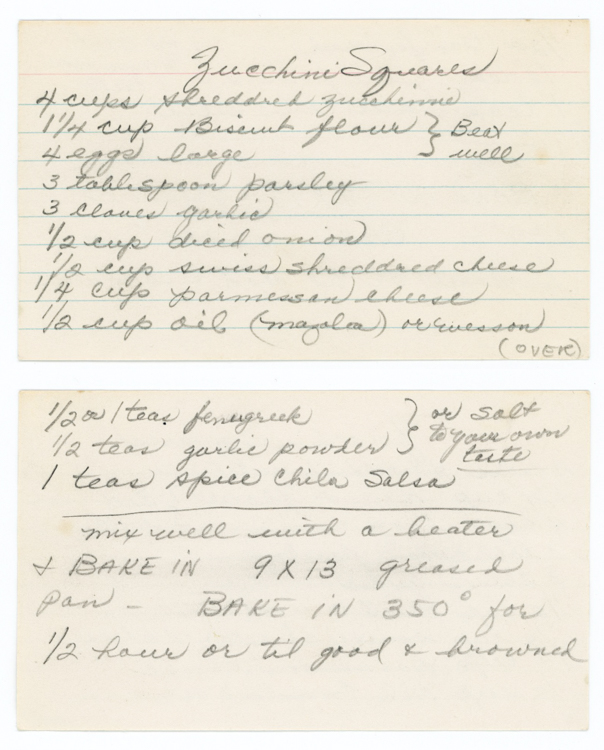 Zucchini Squares
4 cups shreddred zucchinnie
1 1/4 cup Biscuit flour } Beat
4 eggs large } well
3 tablespoon parsley
3 claves garlic
1/2 cup diced onion
1/2 cup swiss shreddred cheese
1/4 cup parmessan cheese
1/2 cup oil (mazola) or wesson
(OVER)
1/2 or 1 teas fenugreek } or salt
1/2 teas garlic powder } to your own
taste
1 teas spice Chila Salsa
mix well with a beater
& BAKE IN 9 X 13 greased
pan - BAKE IN 350° for
1/2 hour or til good & browned